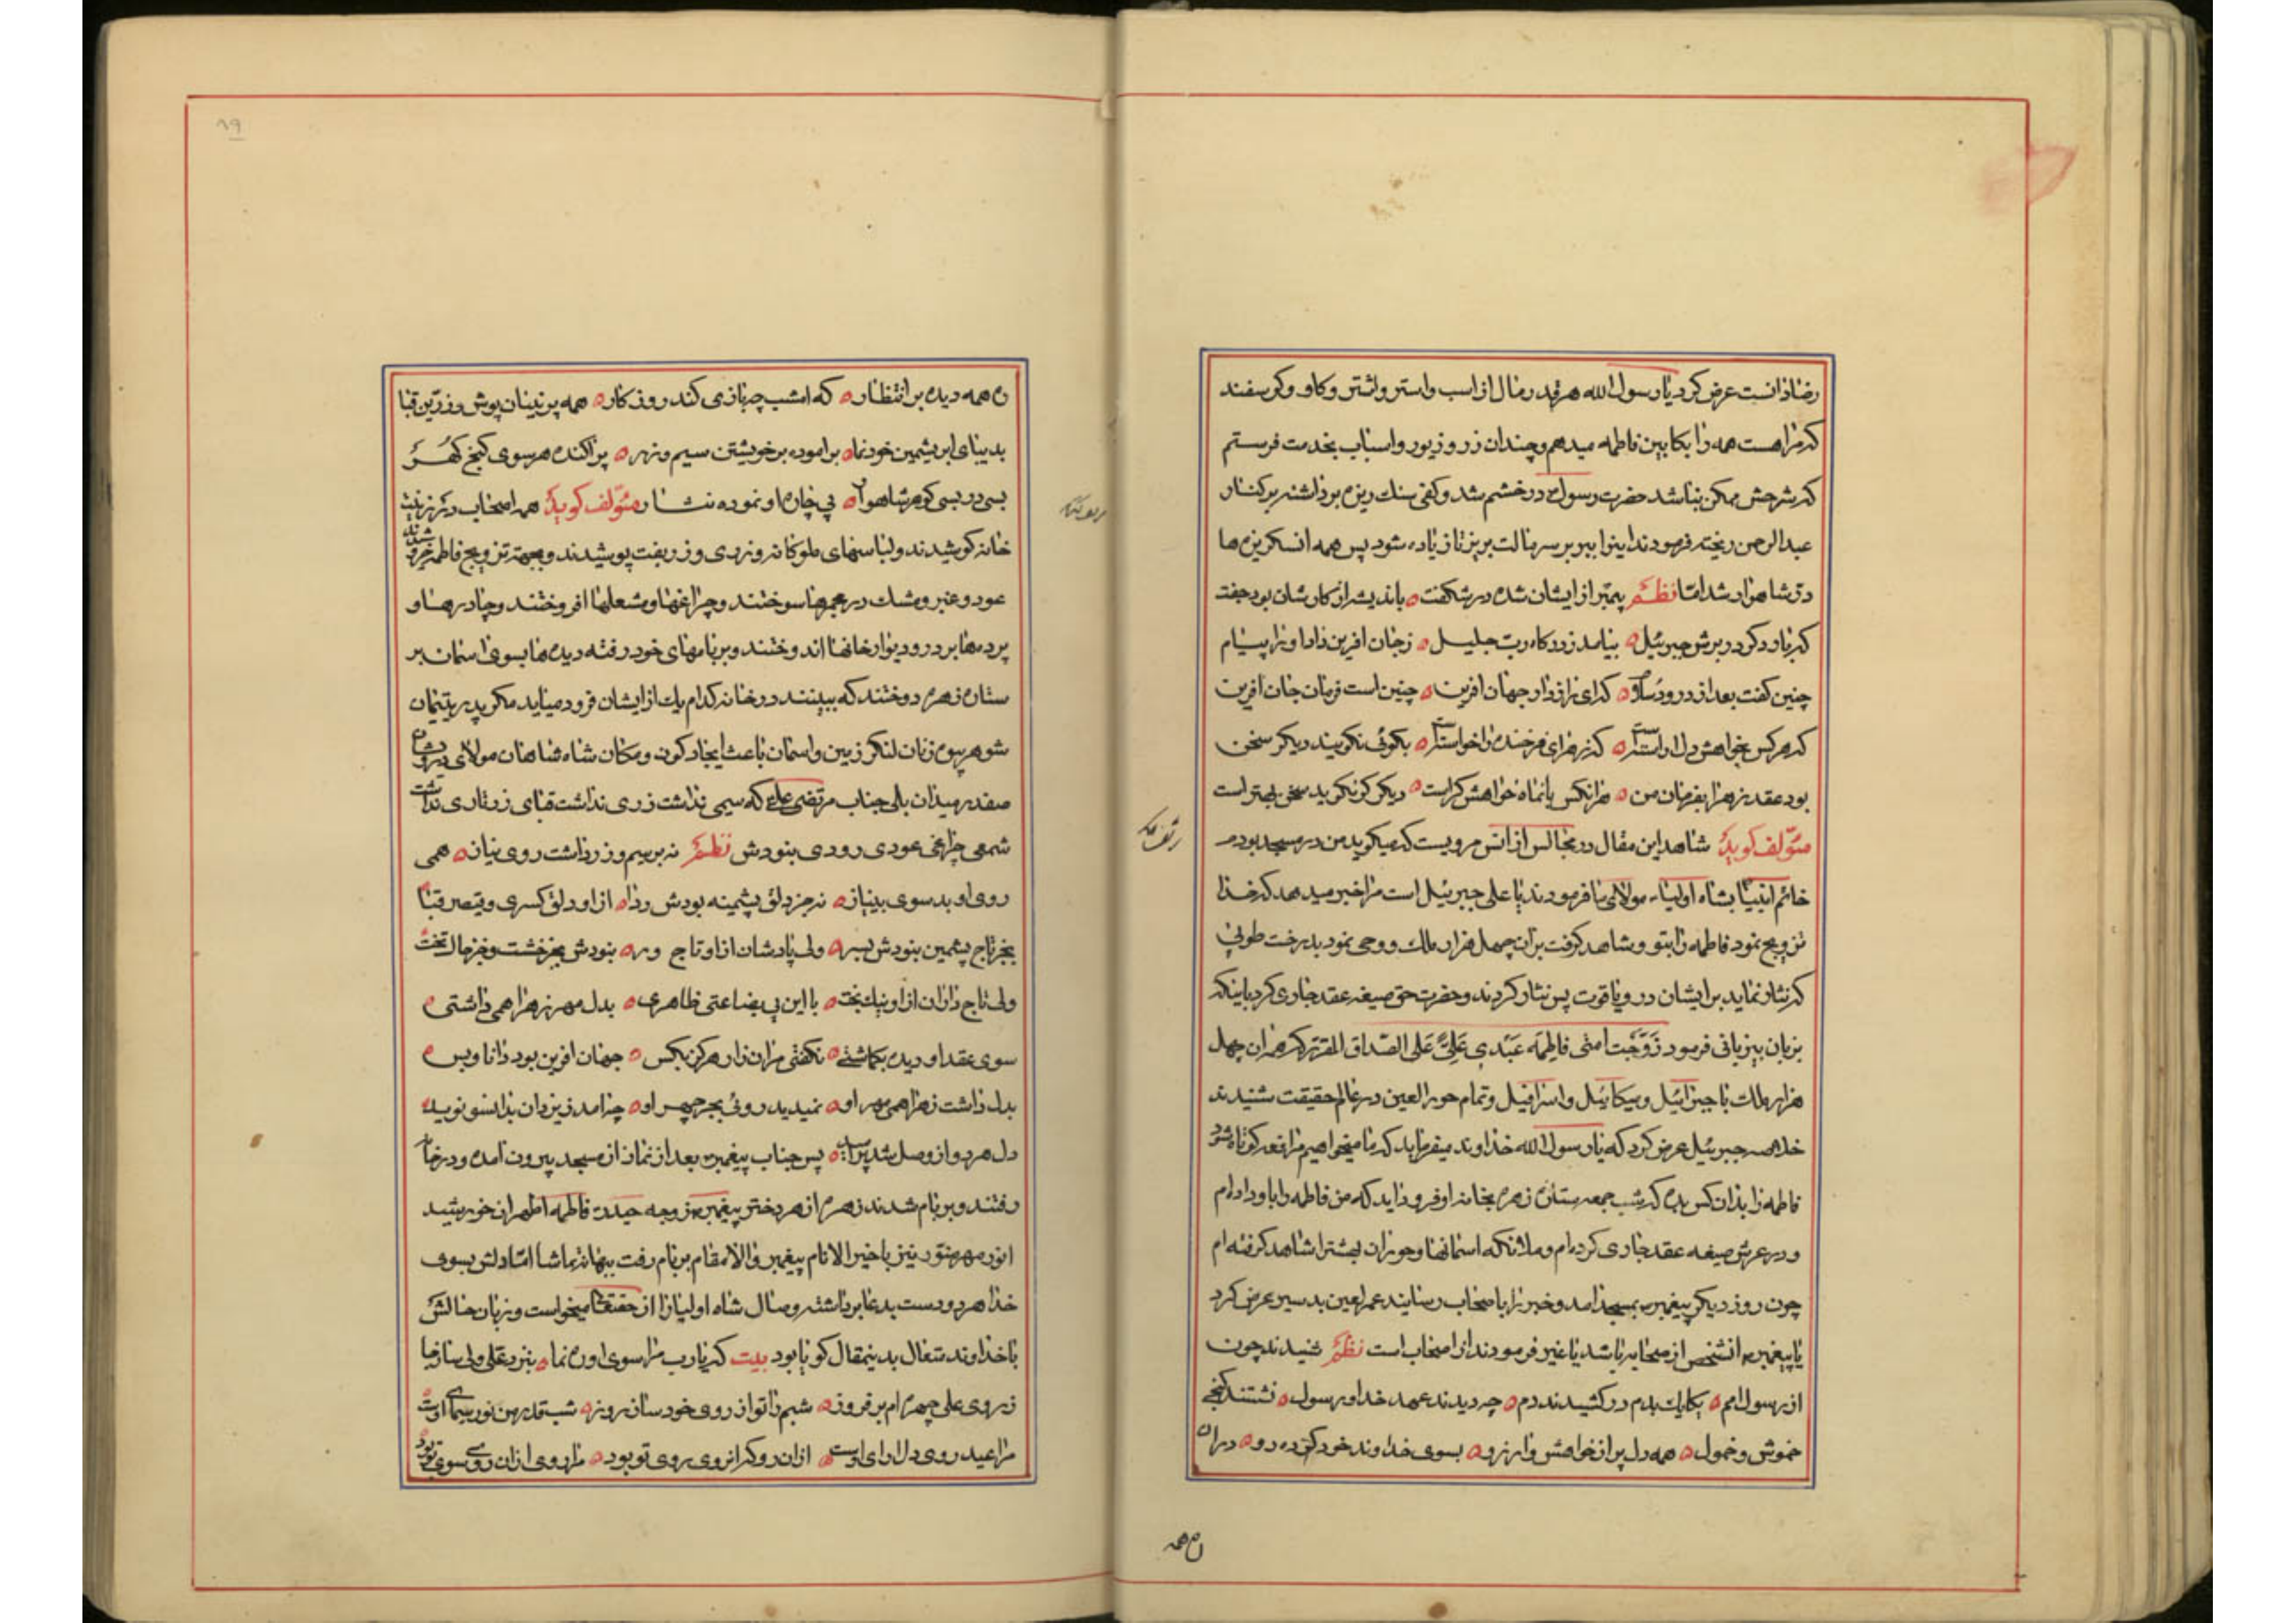 رضا ذانست عرض کرد یا رسول الله هر قدر مال از اسب و استر و اشتر و کاو و کوسفند
که مرا هست همه را بکابین فاطمه میدهم و چندان زر و زیور و اسباب بخدمت فرستم
که شرحش ممکن نباشد حضرت رسول در خشم شد و کفی سنك ریزه برداشته بر کنار
عبدالرحمن ریخته فرمودند اینرا ببر بر سر مالت بریز تا زیاده شود پس همه ان سنکریزه ها
در شاهوار شد امّا نظم پیمبر از ایشان شده در شکفت باندیشه از کارشان بود جفت
که ناورد کرد برش جبرئیل بیامد ز درکاه رب جلیل ز جان افرین داد او را پیام
چنین کفت بعد از درود سلام که ای رازدار جهان افرین چنین است فرمان جان افرین
که هر کس بخواهش دل اراسته که زهرای فرخنده را خواسته بکوئی نکویند دیکر سخن
بود عقد زهرا بفرمان من هرانکس باماه خواهش کراست دیکر کو نکوید سخن بهتر است
مؤلف کوید شاهد این مقال در مجالس از انس مرویست که میکوید من در مسجد بودم
خاتم انبیا بشاه اولیاء مولای ما فرمودند یا علی جبرئیل است مرا خبر میدهد که خدا
تزویج نمود فاطمه را بتو و شاهد کرفت بران چهل هزار ملك و وحی نمود بدرخت طوبی
که نثار نماید بر ایشان در و یاقوت پس نثار کردند و حضرت حق صیغه عقد جاری کرد باینکه
بزبان بیزبانی فرمود زوّجت امتی فاطمه عبدی علیّ علی الصداق المقرر که همان چهل
هزار ملك با جبرائیل و میکائیل و اسرافیل و تمام حور العین در عالم حقیقت شنیدند
خلاصه جبرئیل عرض کرد که یا رسول الله خداوند میفرماید که ما میخواهیم مرافعه کوتاه شود
فاطمه را بدان کس بده که شب جمعه ستاره زهره بخانه او فرود اید که من فاطمه را باو داده ام
و در عرش صیغه عقد جاری کرده ام و ملائکه اسمانها و حوران بهشت را شاهد کرفته ام
چون روز دیکر پیغمبر بمسجد امد و خبر را باصحاب رسانید عمر لعین بد سیر عرض کرد
یا پیغمبر انشخص از صحابه باشد یا غیر فرمودند از اصحاب است نظم شنیدند چون
از رسول امم یکایك بدم در کشیدند دم چه دیدند عهد خدا و رسول نشستند کنجی
خموش و خمول همه دل پر از خواهش و ارزو بسوی خداوند خود کرده رو دران
ن همه
ن همه دیده بر انتظار که امشب چه بازی کند روزکار همه پرنیان پوش و زرین قبا
بدیبای ابریشمین خودنما برا موده بر خویشتن سیم و زر پراکنده هر سوی کنج کهر
بسی در بسی کوهر شاهوار پی چاره او نموده نثار مؤلف کوید همه اصحاب در زینت
خانه کوشیدند و لباسهای ملوکانه و زردی و زربفت پوشیدند و بجهة تزویج فاطمه خرم شدند
عود و عنبر و مشك در مجمرها سوختند و چراغها و مشعلها افروختند و چادرها و
پرده ها بر در و دیوار خانها اندوختند و بر بامهای خود رفته دیده ها بسوی اسمان بر
ستاره زهره دوختند که ببینند در خانه کدام یك از ایشان فرود میاید مکر پدر یتیمان
شوهر بیوه زنان لنکر زمین و اسمان باعث ایجاد کون و مکان شاه شاهان مولای درویشان
صفدر میدان بلی جناب مرتضی علی که سیمی نداشت زری نداشت قبای زرتاری نداشت
شمعی چراغی عودی رودی نبودش نظم نه بر سیم و زر داشت روی نیاز همی
روی او بد سوی بینیاز نه جز دلق پشمینه بودش ردا از او دلق کسری و قیصر قبا
بجز تاج پشمین نبودش بسر ولی پادشاهان از او تاج ور نبودش بجز خشت و جز خاك تخت
ولی تاج داران از او نیك بخت با این بی بضاعتی ظاهری بدل مهر زهرا همی داشتی
سوی عقد او دیده بکماشتی نکفتی مر ان راز هرکز بکس جهان افرین بود دانا و بس
بدل داشت زهرا همی مهر او نمیدید روئی بجز چهر او چه امد ز یزدان بدانسو نوید
دل هر دو از وصل شد پر امید پس جناب پیغمبر بعد از نماز از مسجد بیرون امده و در خانه
رفتند و بر بام شدند زهره از هر دختر پیغمبر زوجه حیدر فاطمه اطهر ان خورشید
انور مهر منور نیز با خیر الانام پیغمبر والا مقام بر بام رفت بهانه تماشا امّا دلش بسوی
خدا هر دو دست بدعا برداشته وصال شاه اولیا را از حقتعالی میخواست و زبان حالش
با خداوند متعال بدینمقال کویا بود بیت که یارب مرا سوی او ره نما بنزد علی ولی ساز جا
ز روی علی چهره ام بر فروز شبم را تو از روی خود ساز روز شب قدر من نور سیمای اوست
مرا عید روی دل ارای اوست از ان رو که انروی روی تو بود مرا روی از ان روی سوی تو بود
۸۹